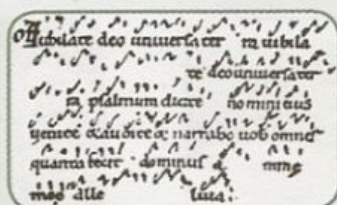 Off Iubilate deo uniuersa ter ra iubila
te deo uniuersa ter
ra psalmum dicite nomini eius
uenite & audite & narrabo uobis omnes
quanta fecit dominus a nime
mee alle luia